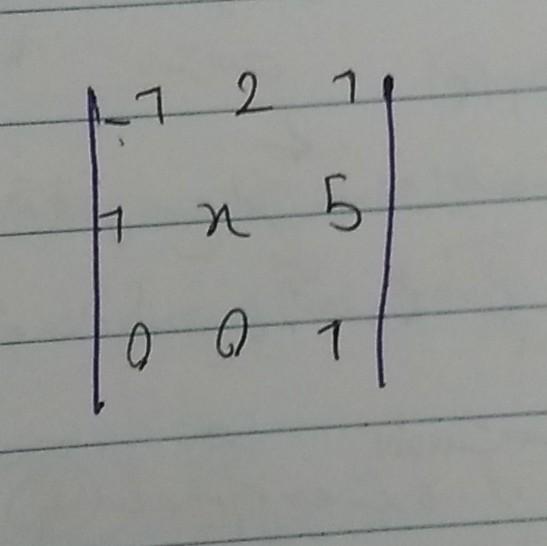 -1 2 1
1 x 5
0 0 1